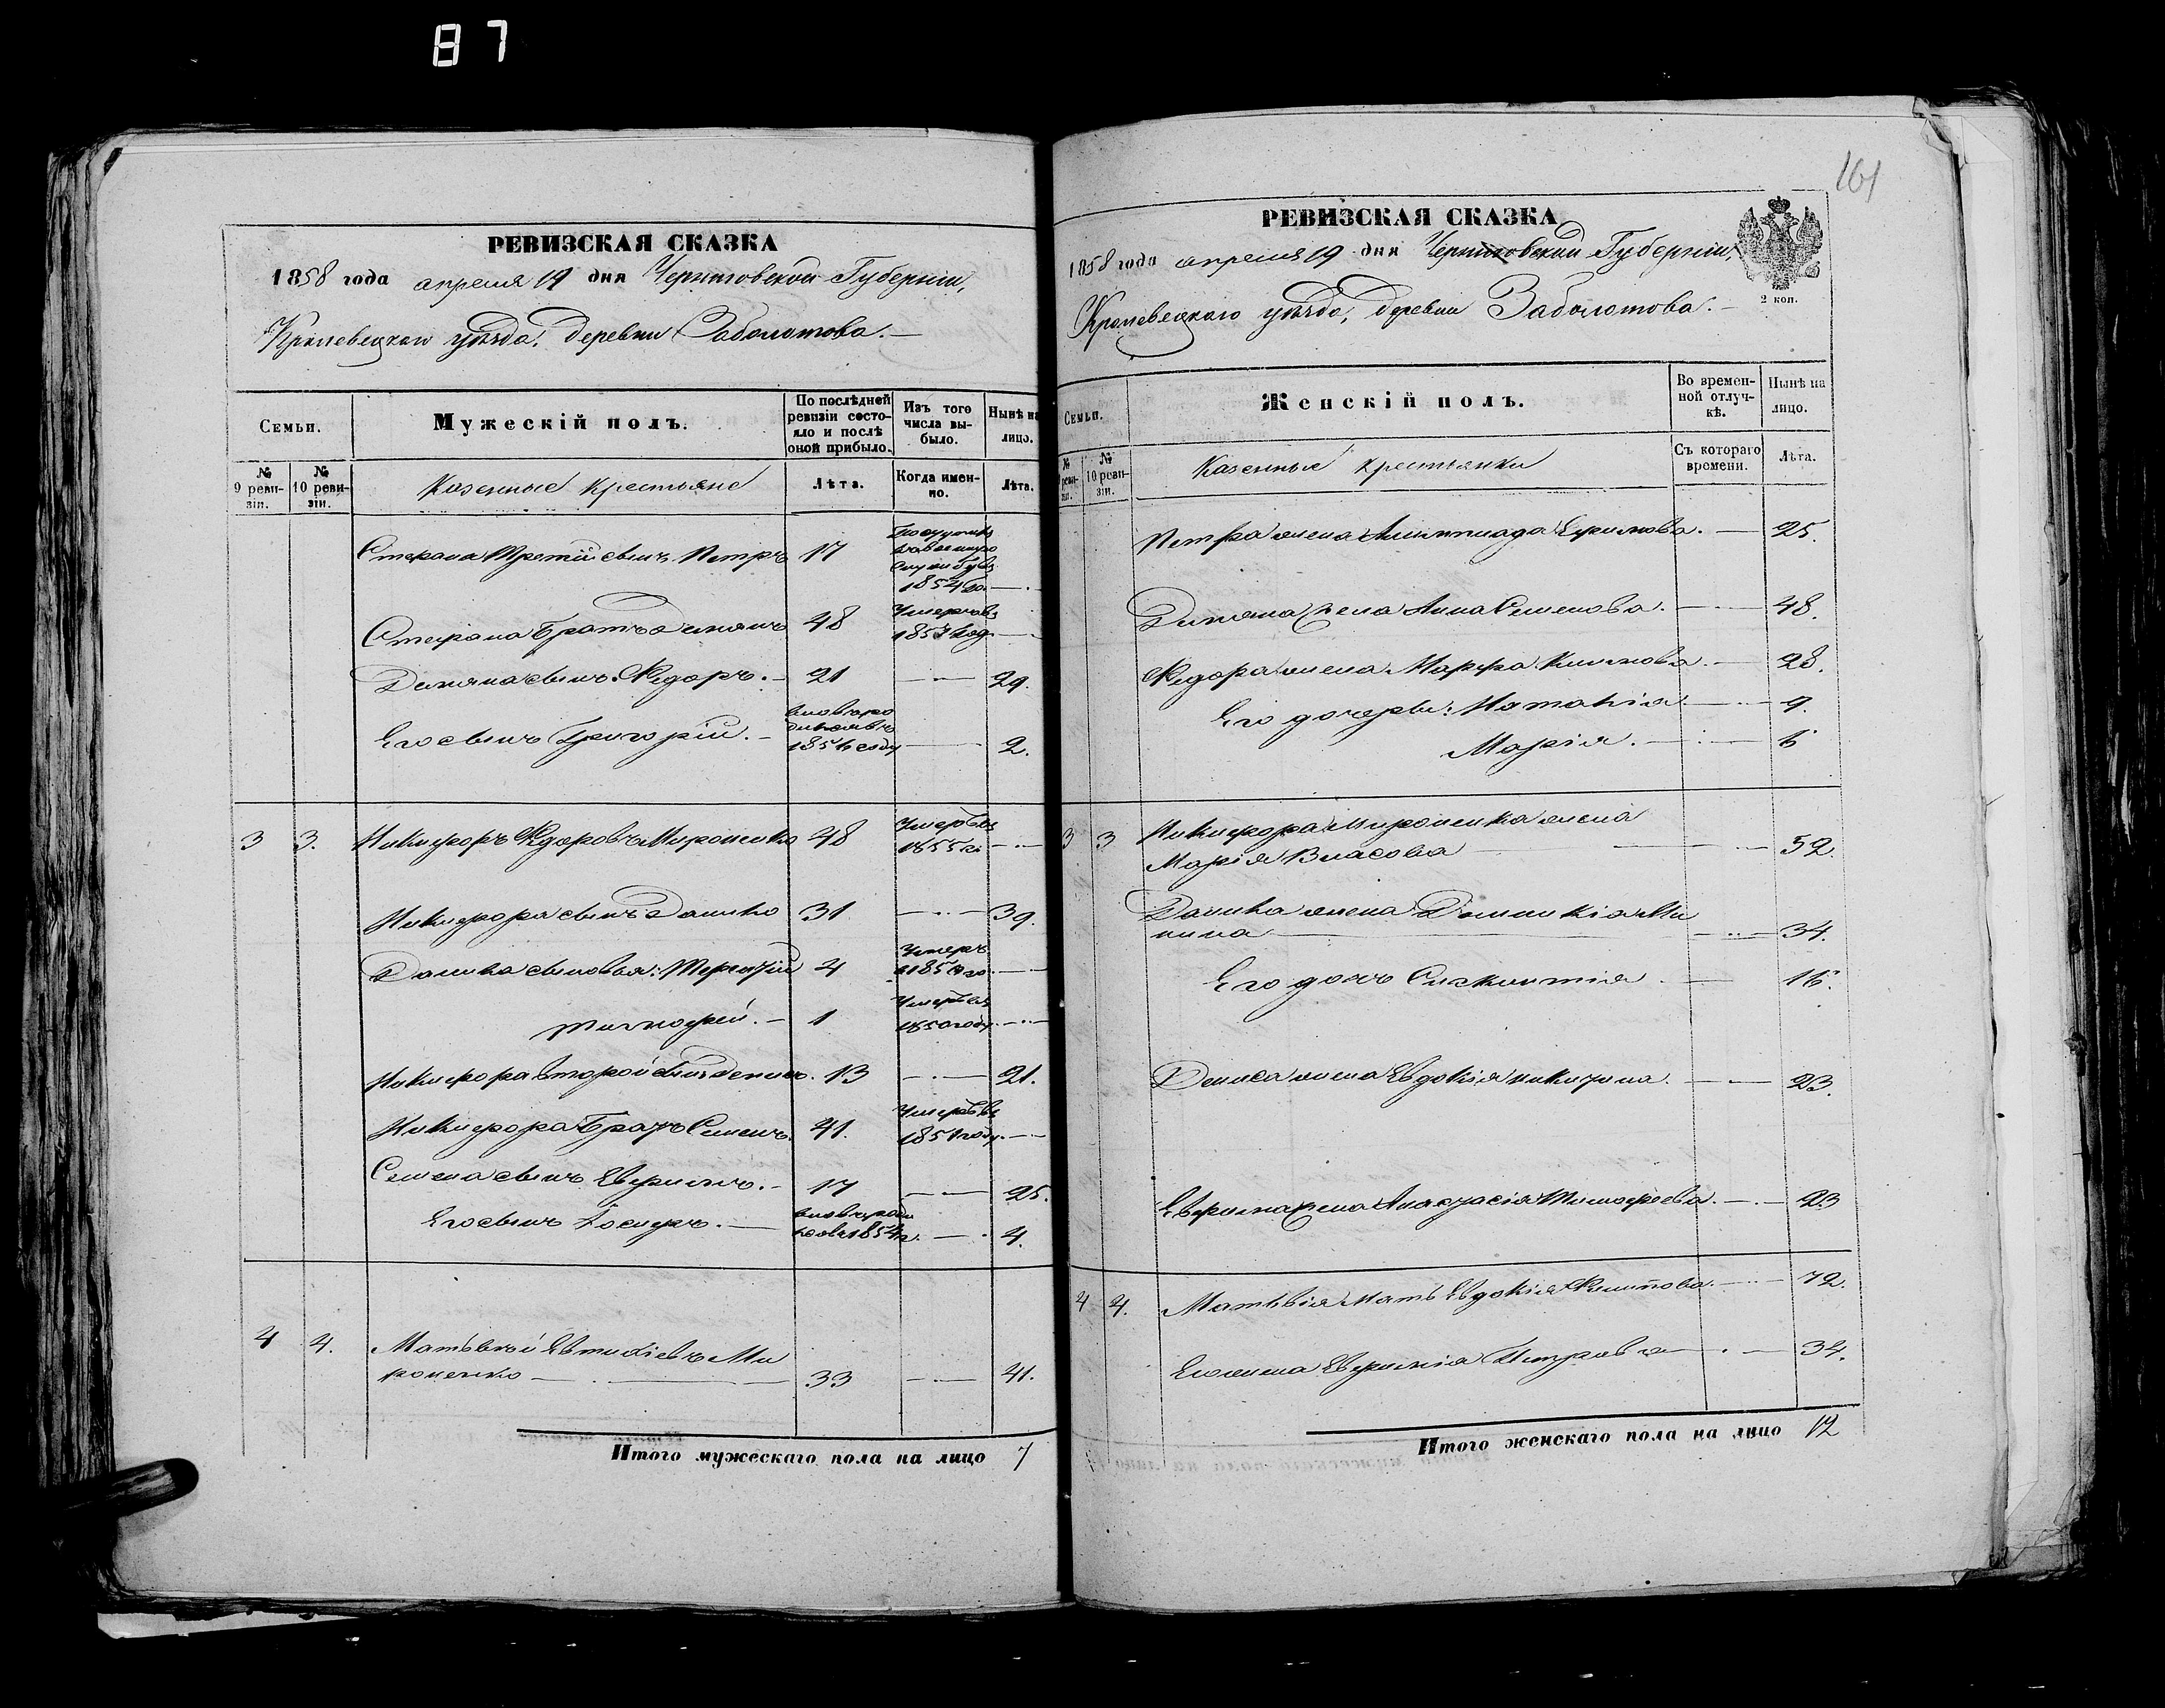 87
РЕВИЗСКАЯ СКАЗКА
1858 года апреля 19 дня Черниговской Губернии,
Кролевецкого уѣзда, деревни Заболотова.—
Семьи.
Мужескій полъ.
По послѣдней ревизіи состояло и послѣ оной прибыло.
Изъ того числа выбыло.
Нынѣ на лицо.
№ 9 ревизіи.
№ 10 ревизіи.
Казенные крестьяне
Лѣта.
Когда именно.
Лѣта.
Стефана третій сынъ Петръ 17 1854 го.
Стефана братъ Демянъ 48 Умеръ въ 1857 год.
Демяна сынъ Федоръ.— 21 29.
Его сынъ Григорій.— 2.
3 3. Никифоръ Федоровъ Мироненко 48 Умеръ въ 1855 го
Никифора сынъ Данило 31 39.
Данила сыновья: Терентій 4 Умеръ
Тимофей.— 1 Умеръ въ 1850 году
Никифора второй сынъ Денисъ. 13 21.
Никифора братъ Семенъ. 41. Умеръ въ 1851 году
Семена сынъ Евфимъ.— 17 25.
Его сынъ Іосифъ.— 1854 г. 4.
4 4. Матѣвей Евтихіевъ Ми
роненко 33 41.
Итого мужескаго пола на лицо 7
161
РЕВИЗСКАЯ СКАЗКА
1858 года апреля 19 дня Черниговской Губернии,
Кролевецкаго уѣзда, деревни Заболотова.—
2 коп.
Семьи.
Женскій полъ.
Во временной отлучкѣ.
Нынѣ на лицо.
№ 9 ревизіи.
№ 10 ревизіи.
Казенные крестьянки
Съ котораго времени.
Лѣта.
Петра жена Ефимова.— 25.
Демяна жена Анна Семенова.— 48.
Федора жена Марфа Климова.— 28.
Его дочери: Наталія 9.
Марія. 6
3 3 Никифора Мироненка жена
Марія Власова 52.
Данила жена Домникія Ми
нина 34.
Его дочь 16.
Дениса жена Евдокія Никитина. 23.
Евфима жена Анастасія Тимофеева. 23
4 4. Матѣвія мать Евдокія Филипова. 72.
Его жена Евфимія Петрова 34.
Итого женскаго пола на лицо 12